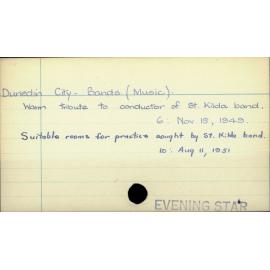 Dunedin City - Bands (Music).
Warm tribute to conductor of St. Kilda band.
6: Nov 19, 1949.
Suitable rooms for practice sought by St. Kilda band.
10: Aug 11, 1951
EVENING STAR